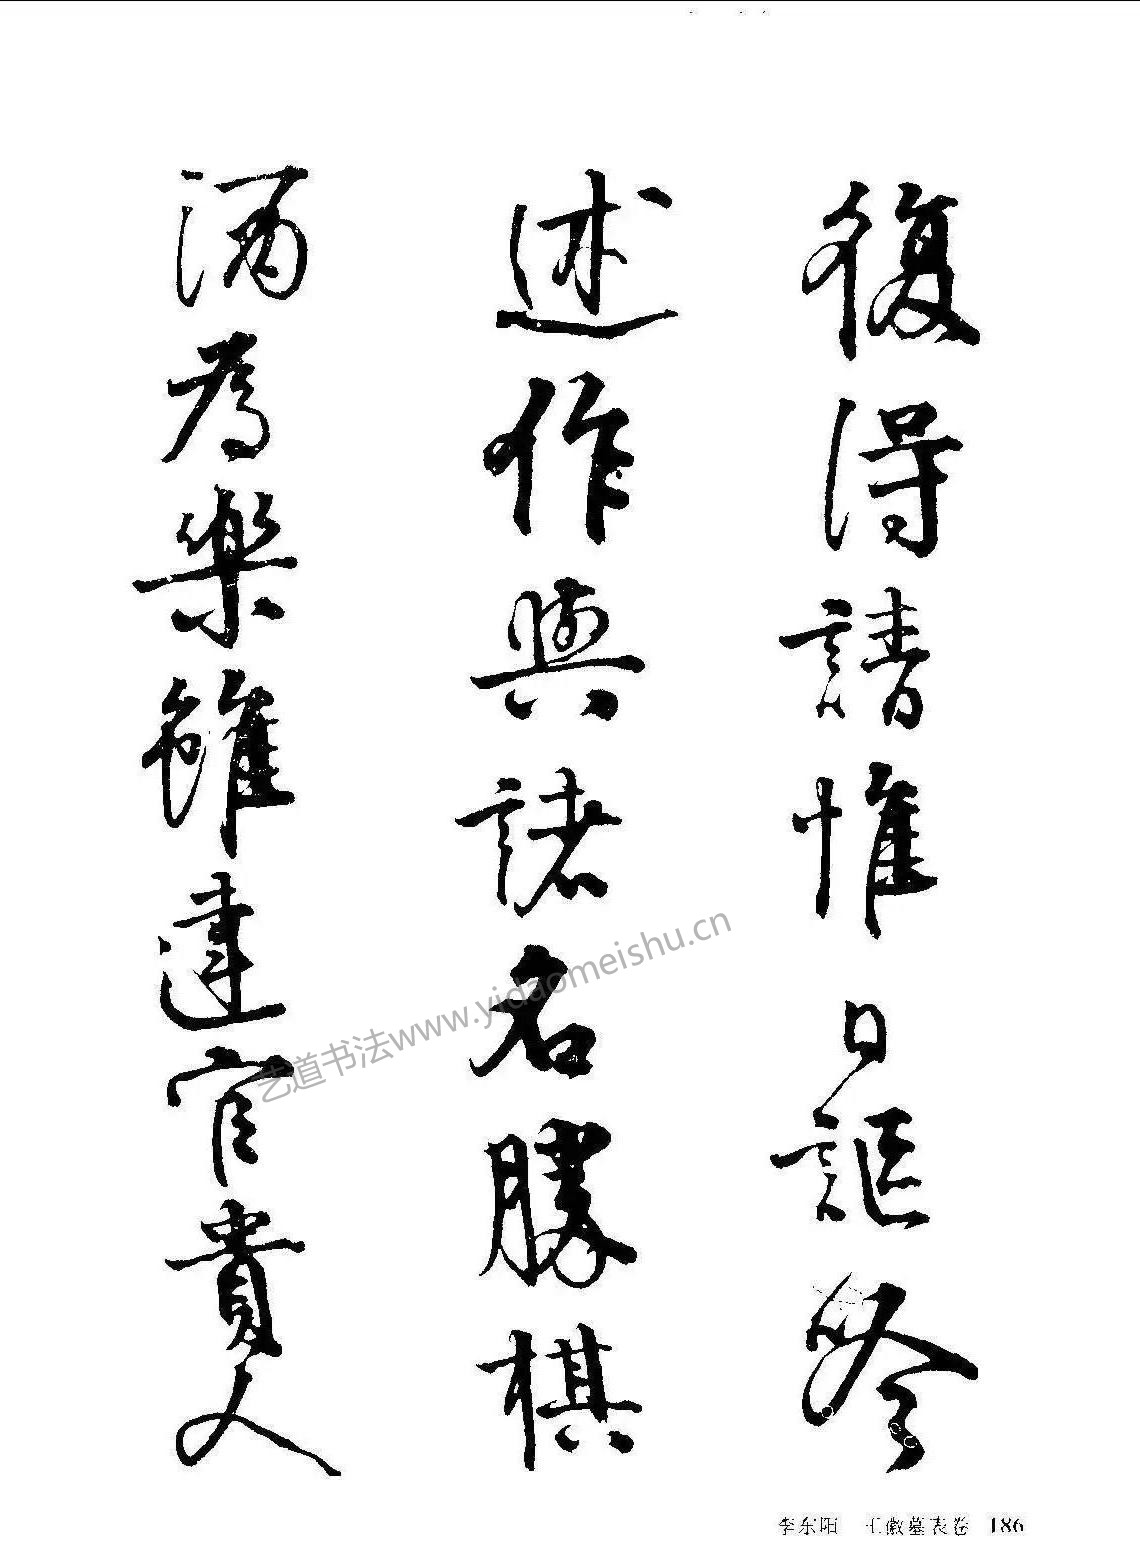 復得請惟日謳唫
述作與諸名勝棋
酒為樂雖達官貴人
艺道书法www.yidaomeishu.cn
李东阳 王徽墓表卷 186